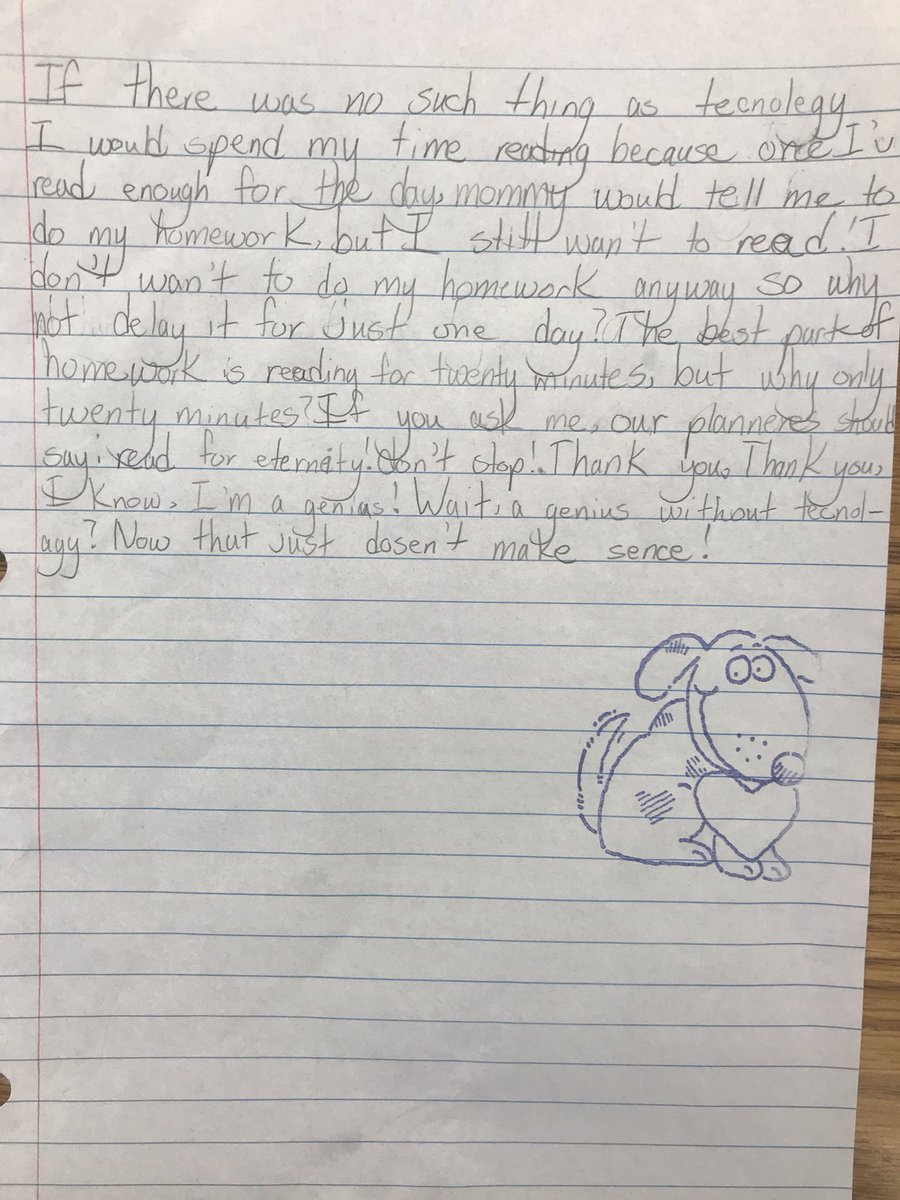 If there was no such thing as tecnolegy
I would spend my time reading because one I'v
read enough for the day, mommy would tell me to
do my homework, but I still wan't to read! I
don't wan't to do my homework anyway so why
not delay it for just one day? The best part of
homework is reading for twenty minutes, but why only
twenty minutes? If you ask me, our planneres should
say: read for eternity! Don't stop! Thank you, Thank you,
I know, I'm a genias! Wait, a genius without tecnol-
agy? Now that just dosen't make sence!